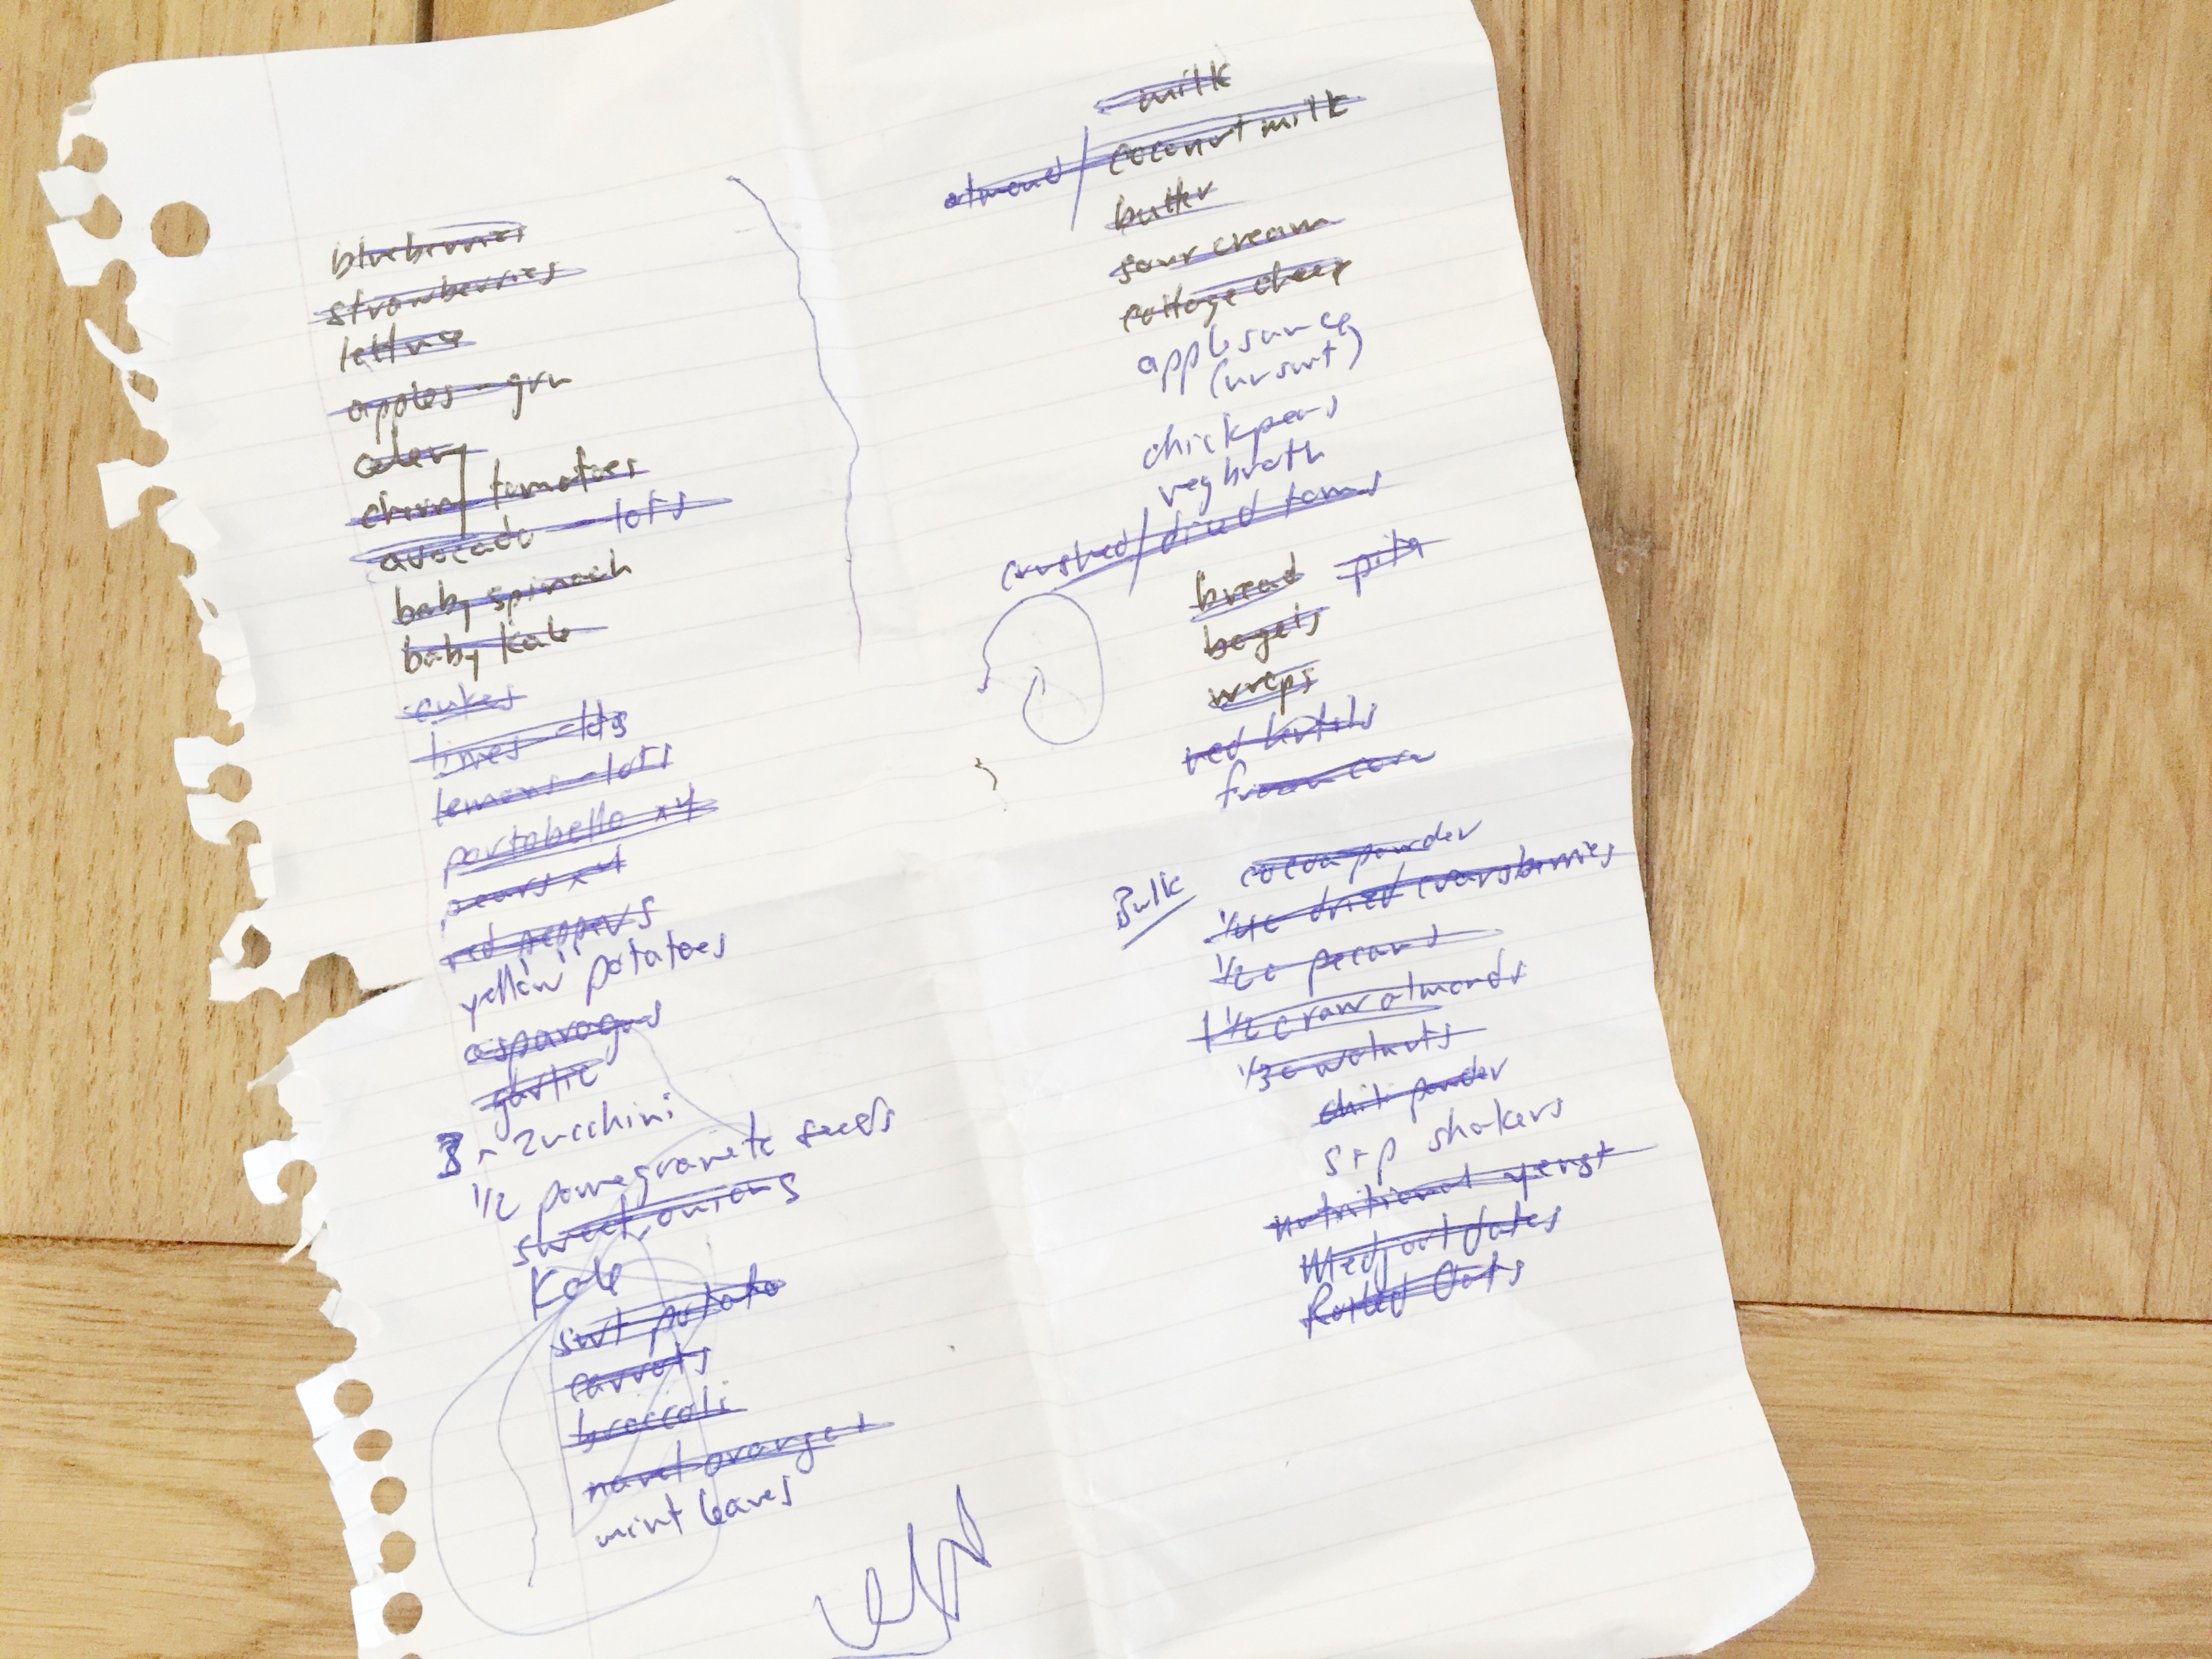 blueberries
strawberries
lettuce
apples - grn
celery
cherry tomatoes
avocado - lots
baby spinach
baby kale
cukes
limes - lots
lemons - lots
portobello x4
pears x4
red peppers
yellow potatoes
asparagus
garlic
3 - zucchini
1/2 pomegranate seeds
sweet onions
Kale
swt potato
carrots
broccoli
navel oranges
mint leaves
milk
almond / coconut milk
butter
sour cream
cottage cheese
applesauce
(unswt)
chickpeas
veg broth
crushed / dried toms
bread pita
bagels
wraps
red lentils
frozen corn
Bulk cocoa powder
1/4 c dried cranberries
1/2 c pecans
1 1/2 c raw almonds
1/3 c walnuts
chili powder
s + p shakers
nutritional yeast
Medjool dates
Rolled Oats